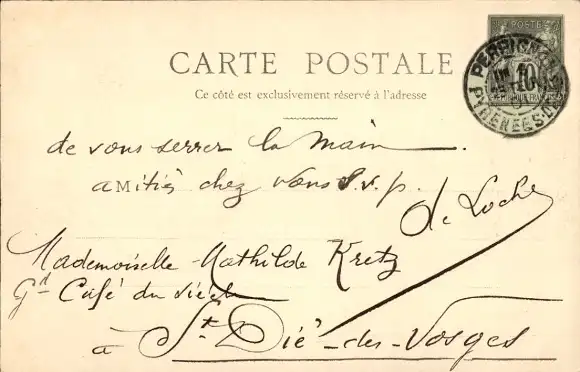 CARTE POSTALE
Ce côté est exclusivement réservé à l'adresse
POSTE
10
PERPIGNAN
PYRENEES-OR
de vous serrer la main.
amitiés chez vous s.v.p.
de Loche
Mademoiselle Mathilde Kretz
Gd Café du Siècle
à St Dié-des-Vosges